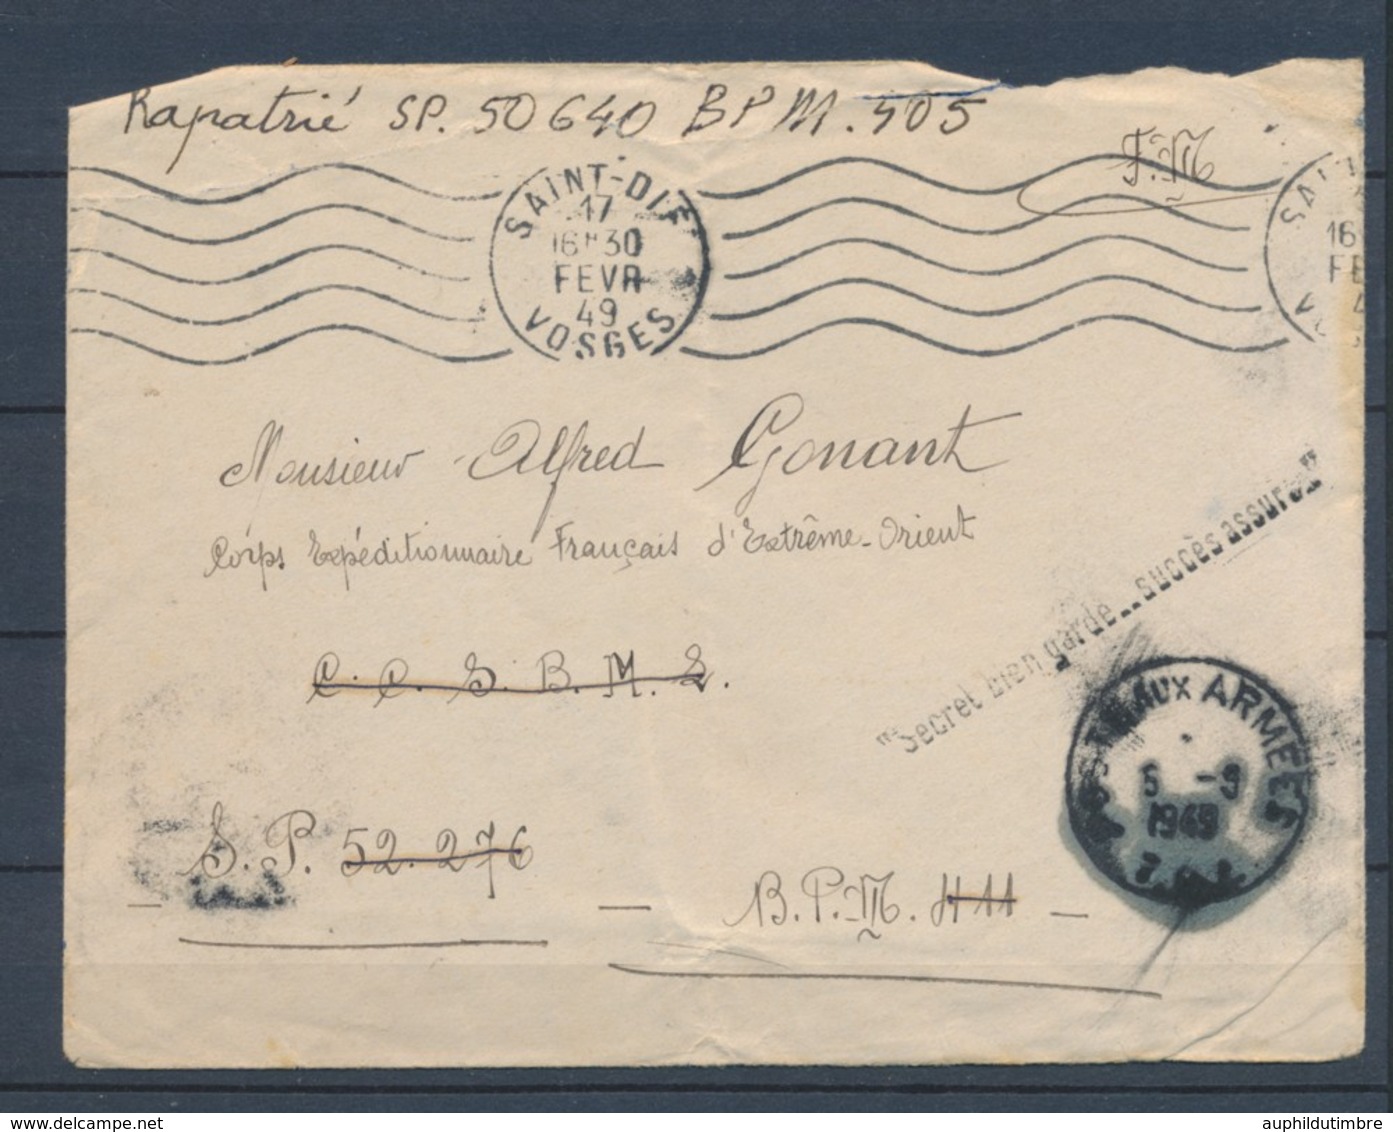 Rapatrié SP. 50 640 BPM. 405
F.M
SAINT-DIÉ
17
16H30
FEVR
49
VOSGES
SAI
16
FE
4
Monsieur Alfred Gonant
Corps Expéditionnaire Français d'Extrême-Orient
C. C. S. B. M. 2.
"Secret bien gardé... succès assuré"
POSTE AUX ARMEES
5 -9
1949
S. P. 52. 276 — B.P.M. 411 —
auphildutimbre